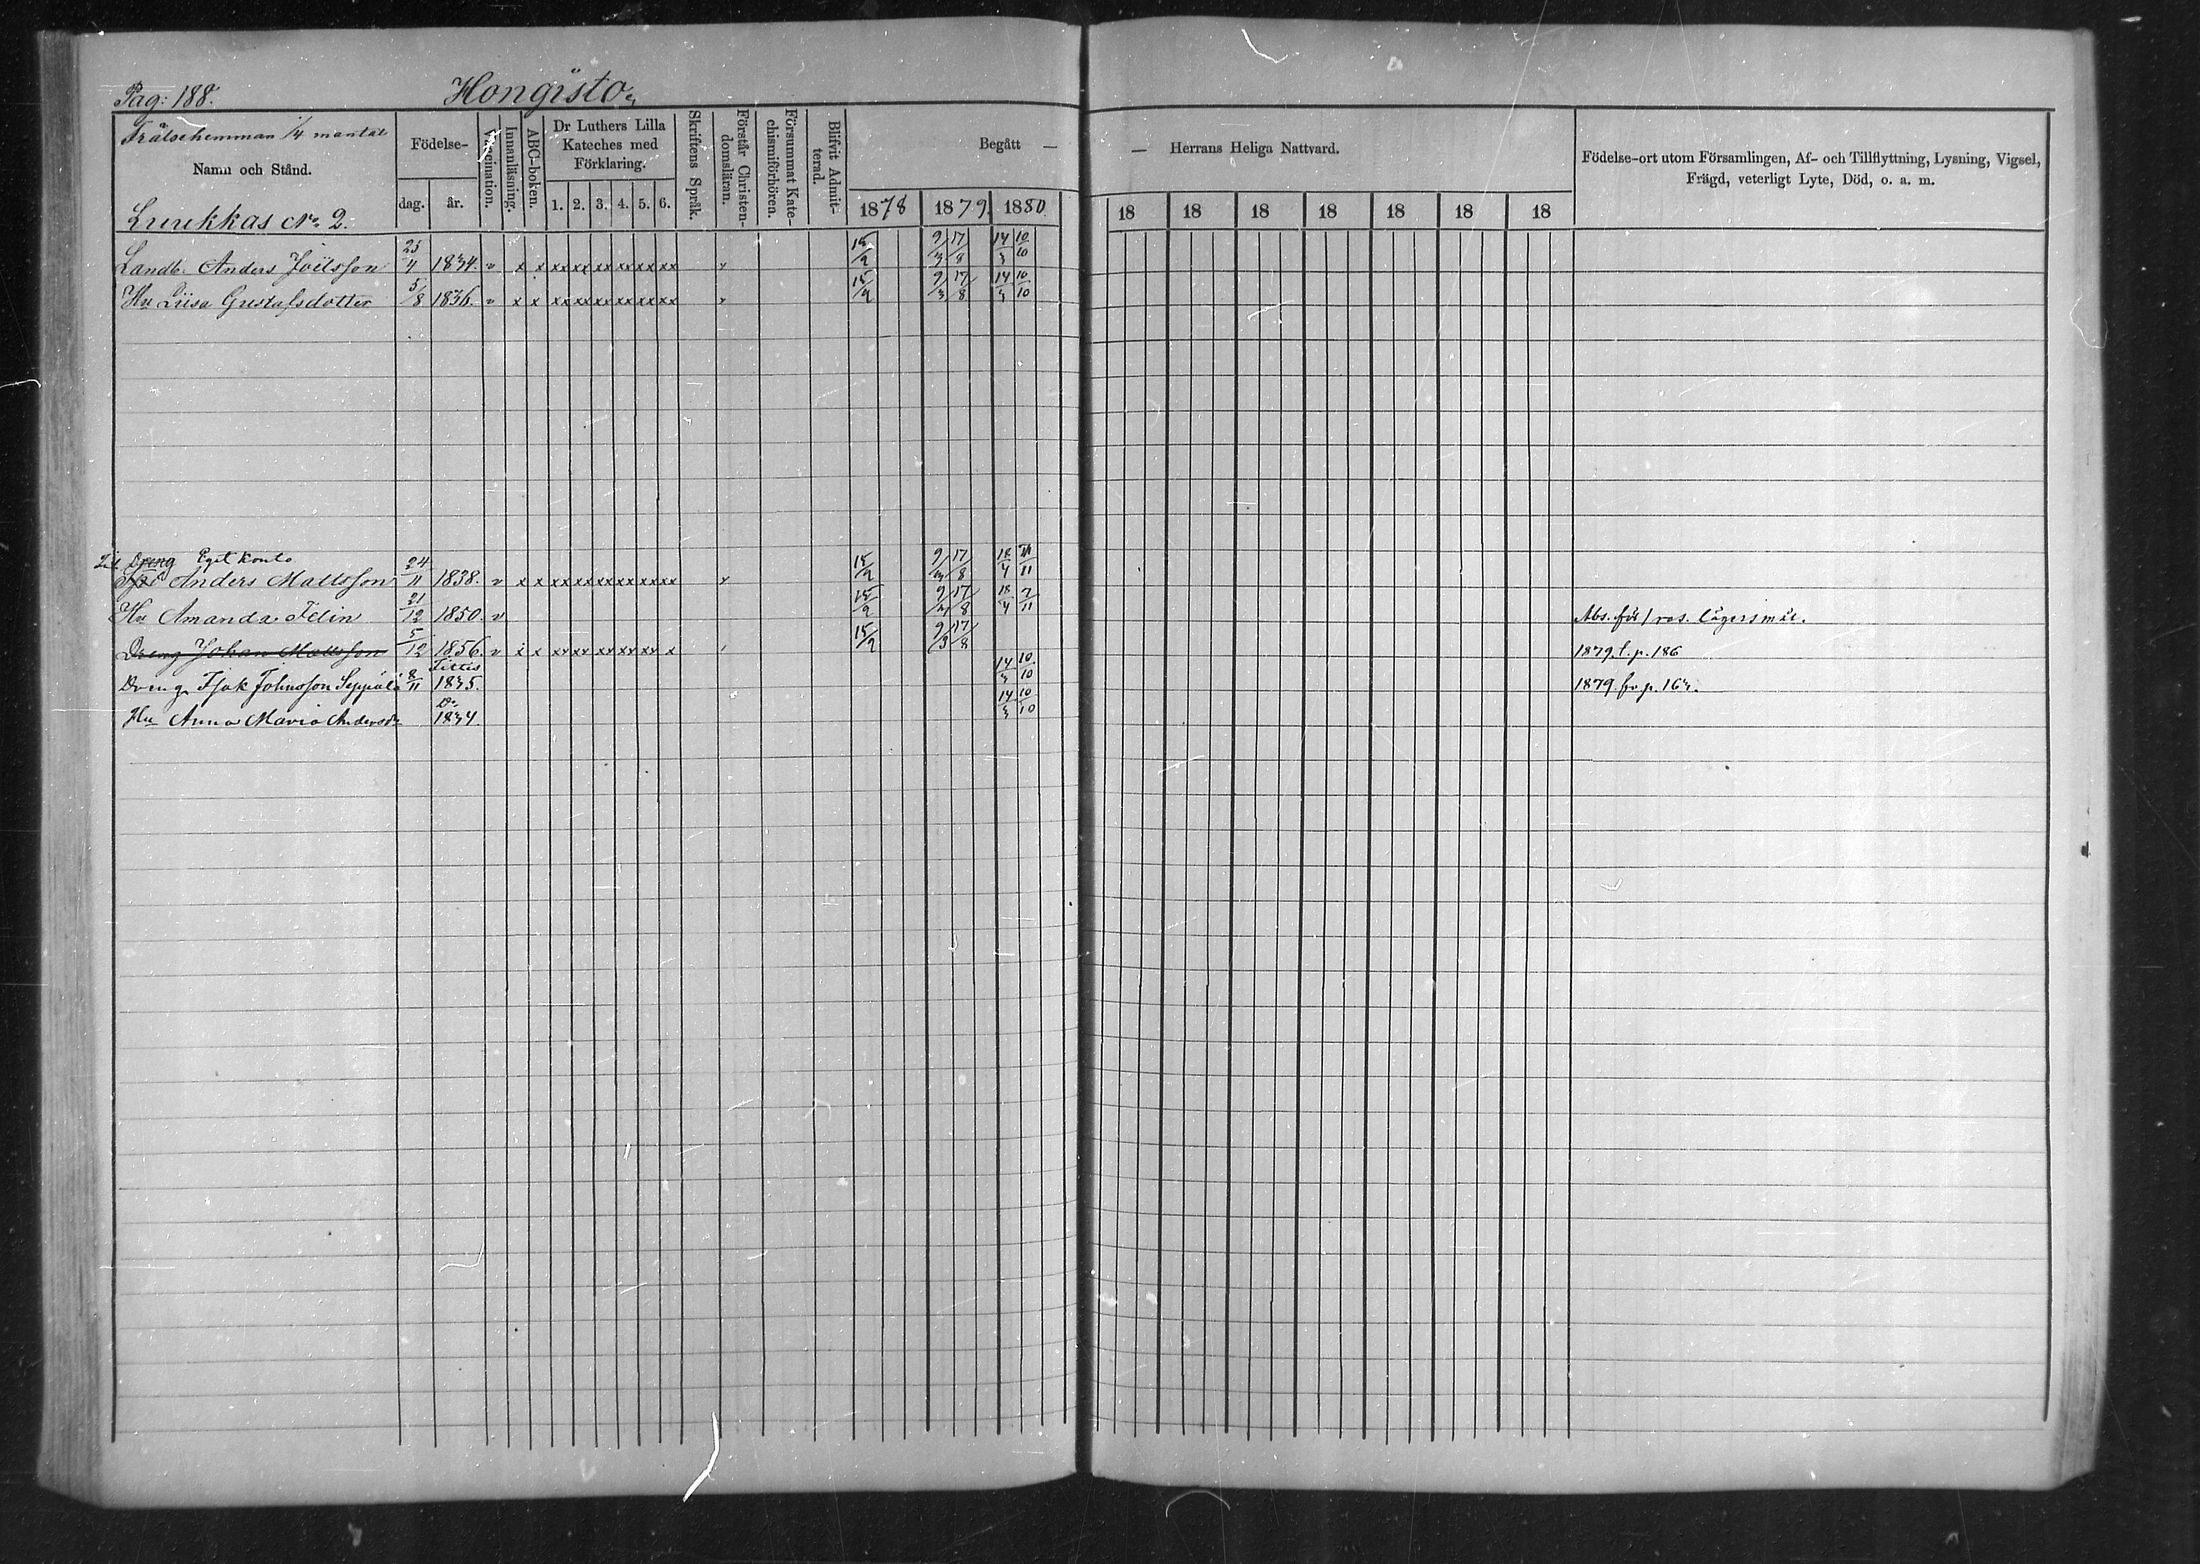 Pag: 188. Hongisto,
Frälsehemman 1/4 mantal
Namn och Stånd.
Födelse-
dag. år.
Vaccination.
Innanläsning.
ABC-boken.
Dr Luthers Lilla
Kateches med
Förklaring.
1. 2. 3. 4. 5. 6.
Skriftens Språk.
Förstår Christen-
domsläran.
Försummat Kate-
chismiförhören.
Blifvit Admit-
terad.
Begått — — Herrans Heliga Nattvard.
1878 1879. 1880. 18 18 18 18 18 18 18
Födelse-ort utom Församlingen, Af- och Tillflyttning, Lysning, Vigsel,
Frägd, veterligt Lyte, Död, o. a. m.
Luukkas No 2.
Landb. Anders Joelsson 25/4 1834. v x x xx xx xx xx xx xx v 15/9 9/3 17/8 14/3 10/10
Hu Liisa Gustafsdotter 5/8 1836. v x x xx xx xx xx xx xx v 15/9 9/3 17/8 14/3 10/10
Dreng Eget konto
Anders Mattsson 24/11 1838. v x x xx xx xx xx xx xx v 15/9 9/3 17/8 18/4 7/11
Hu Amanda Felin 21/12 1850. v 15/9 9/3 17/8 18/4 7/11 Abs. för lägersmål.
Dreng Johan Mattsson 5/12 1856. v x x xx xx xx xx xx x 15/9 9/3 17/8 1879 t. p. 186
Dreng Isak Johnsson Seppälä 8/11 Tittis 1835. 14/3 10/10 1879 fr p. 163.
Hu Anna Maria Andersdr Do 1834. 14/3 10/10